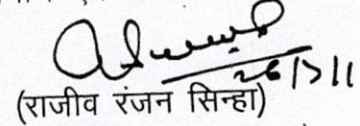 26/7/11
(राजीव रंजन सिन्हा)